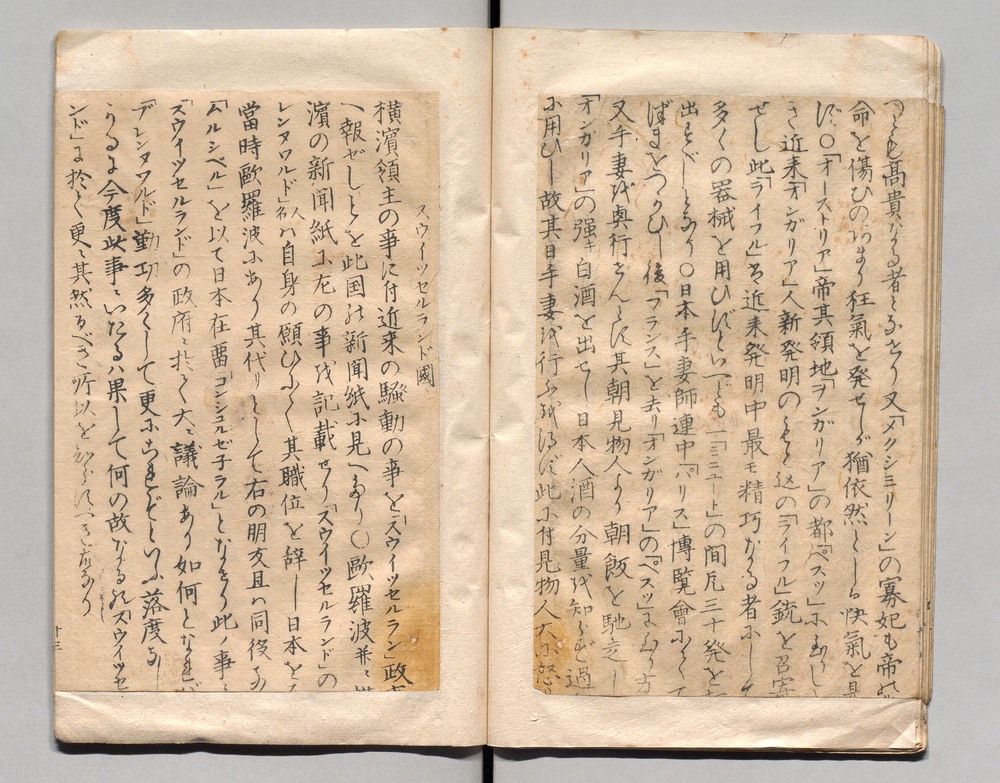 も高貴なる者となせり又「メクシミリーン」の寡妃も帝の
命を傷ひのあまり狂氣を発せしが猶依然として快氣を見
ず〇「オーストリア」帝其領地「ヲンガリア」の都「ペスツ」に
き近来「オンガリア」人新発明の「ライフル」銃を召寄
せし此「ライフル」は近来発明中最モ精巧なる者にして
多くの器械を用ひずといへども一「ミニュート」の間凡三十発を
出すべしとなり〇日本手妻師連中「パリス」博覧會にて
後「フランス」を去り「オンガリア」の「ペスツ」に
又手妻を奥行せんとす其朝見物人より朝飯を馳走し
「オンガリア」の强キ白酒を出せし日本人酒の分量を知らず過
に用ひし故其日手妻を行ふを得ず此に付見物人大に怒
スウイツセルランド國
横濱領主の事に付近来の騒動の事を「スウイツセルラン政
へ報ぜしことを此国の新聞紙に見へたり〇歐羅波并ニ
濱の新聞紙に左の事を記載せり「スウイツセルランド」の
レンヌワルド」人名ハ自身の願ひにて其職位を辞し日本を
當時歐羅波にあり其代りとして右の朋友且ハ同役な
「ハルシベル」を以て日本在畱「コンシュルゼ子ラル」となせり此ノ事ニ
「スウイツセルランド」の政府ニ於て大ニ議論あり如何となれバ
ブレンヌワルド」勤功多くして更にこれぞといふ落度なし
るに今度此事ニいたるハ果して何の故なる「スウイツセ
ンド」に於て更ニ其然るべき所以を
十三